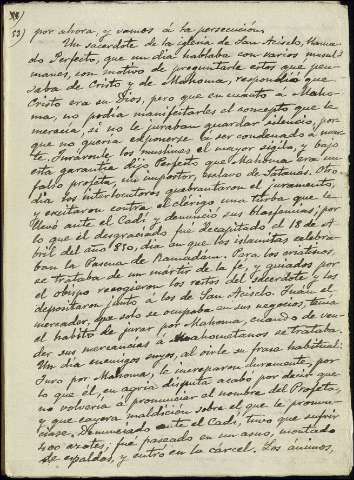 53)
por ahora, y vamos á la persecución.
Un sacerdote de la iglesia de San Acisclo, llama-
do Perfecto, que un día hablaba con varios musul-
manes, con motivo de preguntarle estos que pen-
saba de Cristo y de Mahoma, respondió que
Cristo era su Dios, pero que en cuanto á Maho-
ma, no podía manifestarles el concepto que le
merecía, si no le juraban guardar silencio, por-
que no quería exponerse á ser condenado á muer-
te. Juráronle los muslimes el mayor sigilo, y bajo
esta garantía dijo Perfecto que Mahoma era un
falso profeta, un impostor, esclavo de Satanás. Otro
día los interlocutores quebrantaron el juramento,
y excitaron contra el clérigo una turba que le
llevó ante el Cadí y denunció sus blasfemias; por
lo que el desgraciado fué decapitado el 18 de A-
bril del año 850, día en que los islamitas celebra-
ban la Pascua de Ramadán. Para los cristianos
se trataba de un mártir de la fe, y guiados por
el obispo recogieron los restos del sacerdote y los
depositaron junto á los de San Acisclo. Juan el
mercader, que solo se ocupaba en sus negocios, tenía
el hábito de jurar por Mahoma, cuando de ven-
der sus mercancías á mahometanos se trataba.
Un día enemigos suyos, al oirle su frase habitual:
Juro por Mahoma, le increparon duramente, por
lo que él, en agria disputa acabó por decir que
no volvería á pronunciar el nombre del Profeta,
y que cayera maldición sobre el que le pronun-
ciase. Denunciado ante el Cadí, tuvo que sufrir
400 azotes; fué paseado en un asno, montado
de espaldas, y entró en la cárcel. Los ánimos,